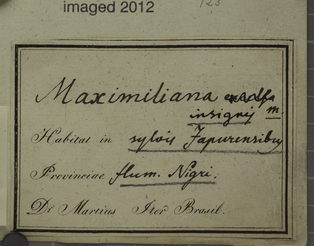 imaged 2012
123
Maximiliana
insignis m
Habitat in sylvis Japurensibus
Provinciae flum. Nigri.
Dr Martius Iter Brasil.